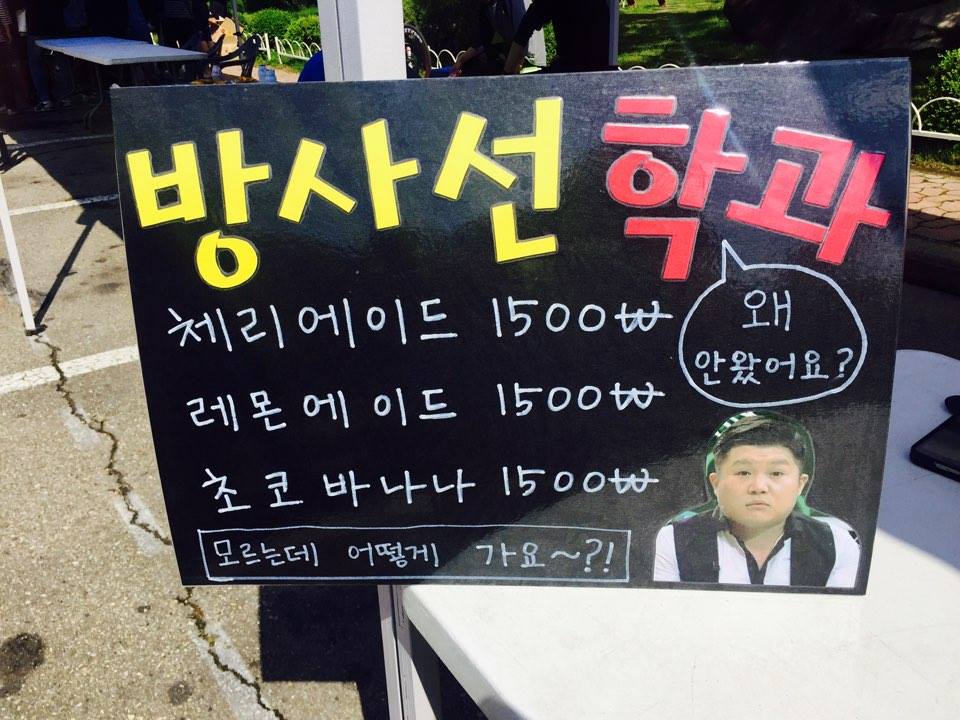 방사선학과
체리에이드 1500₩
레몬에이드 1500₩
초코바나나 1500₩
모르는데 어떻게 가요~?!
왜
안왔어요?